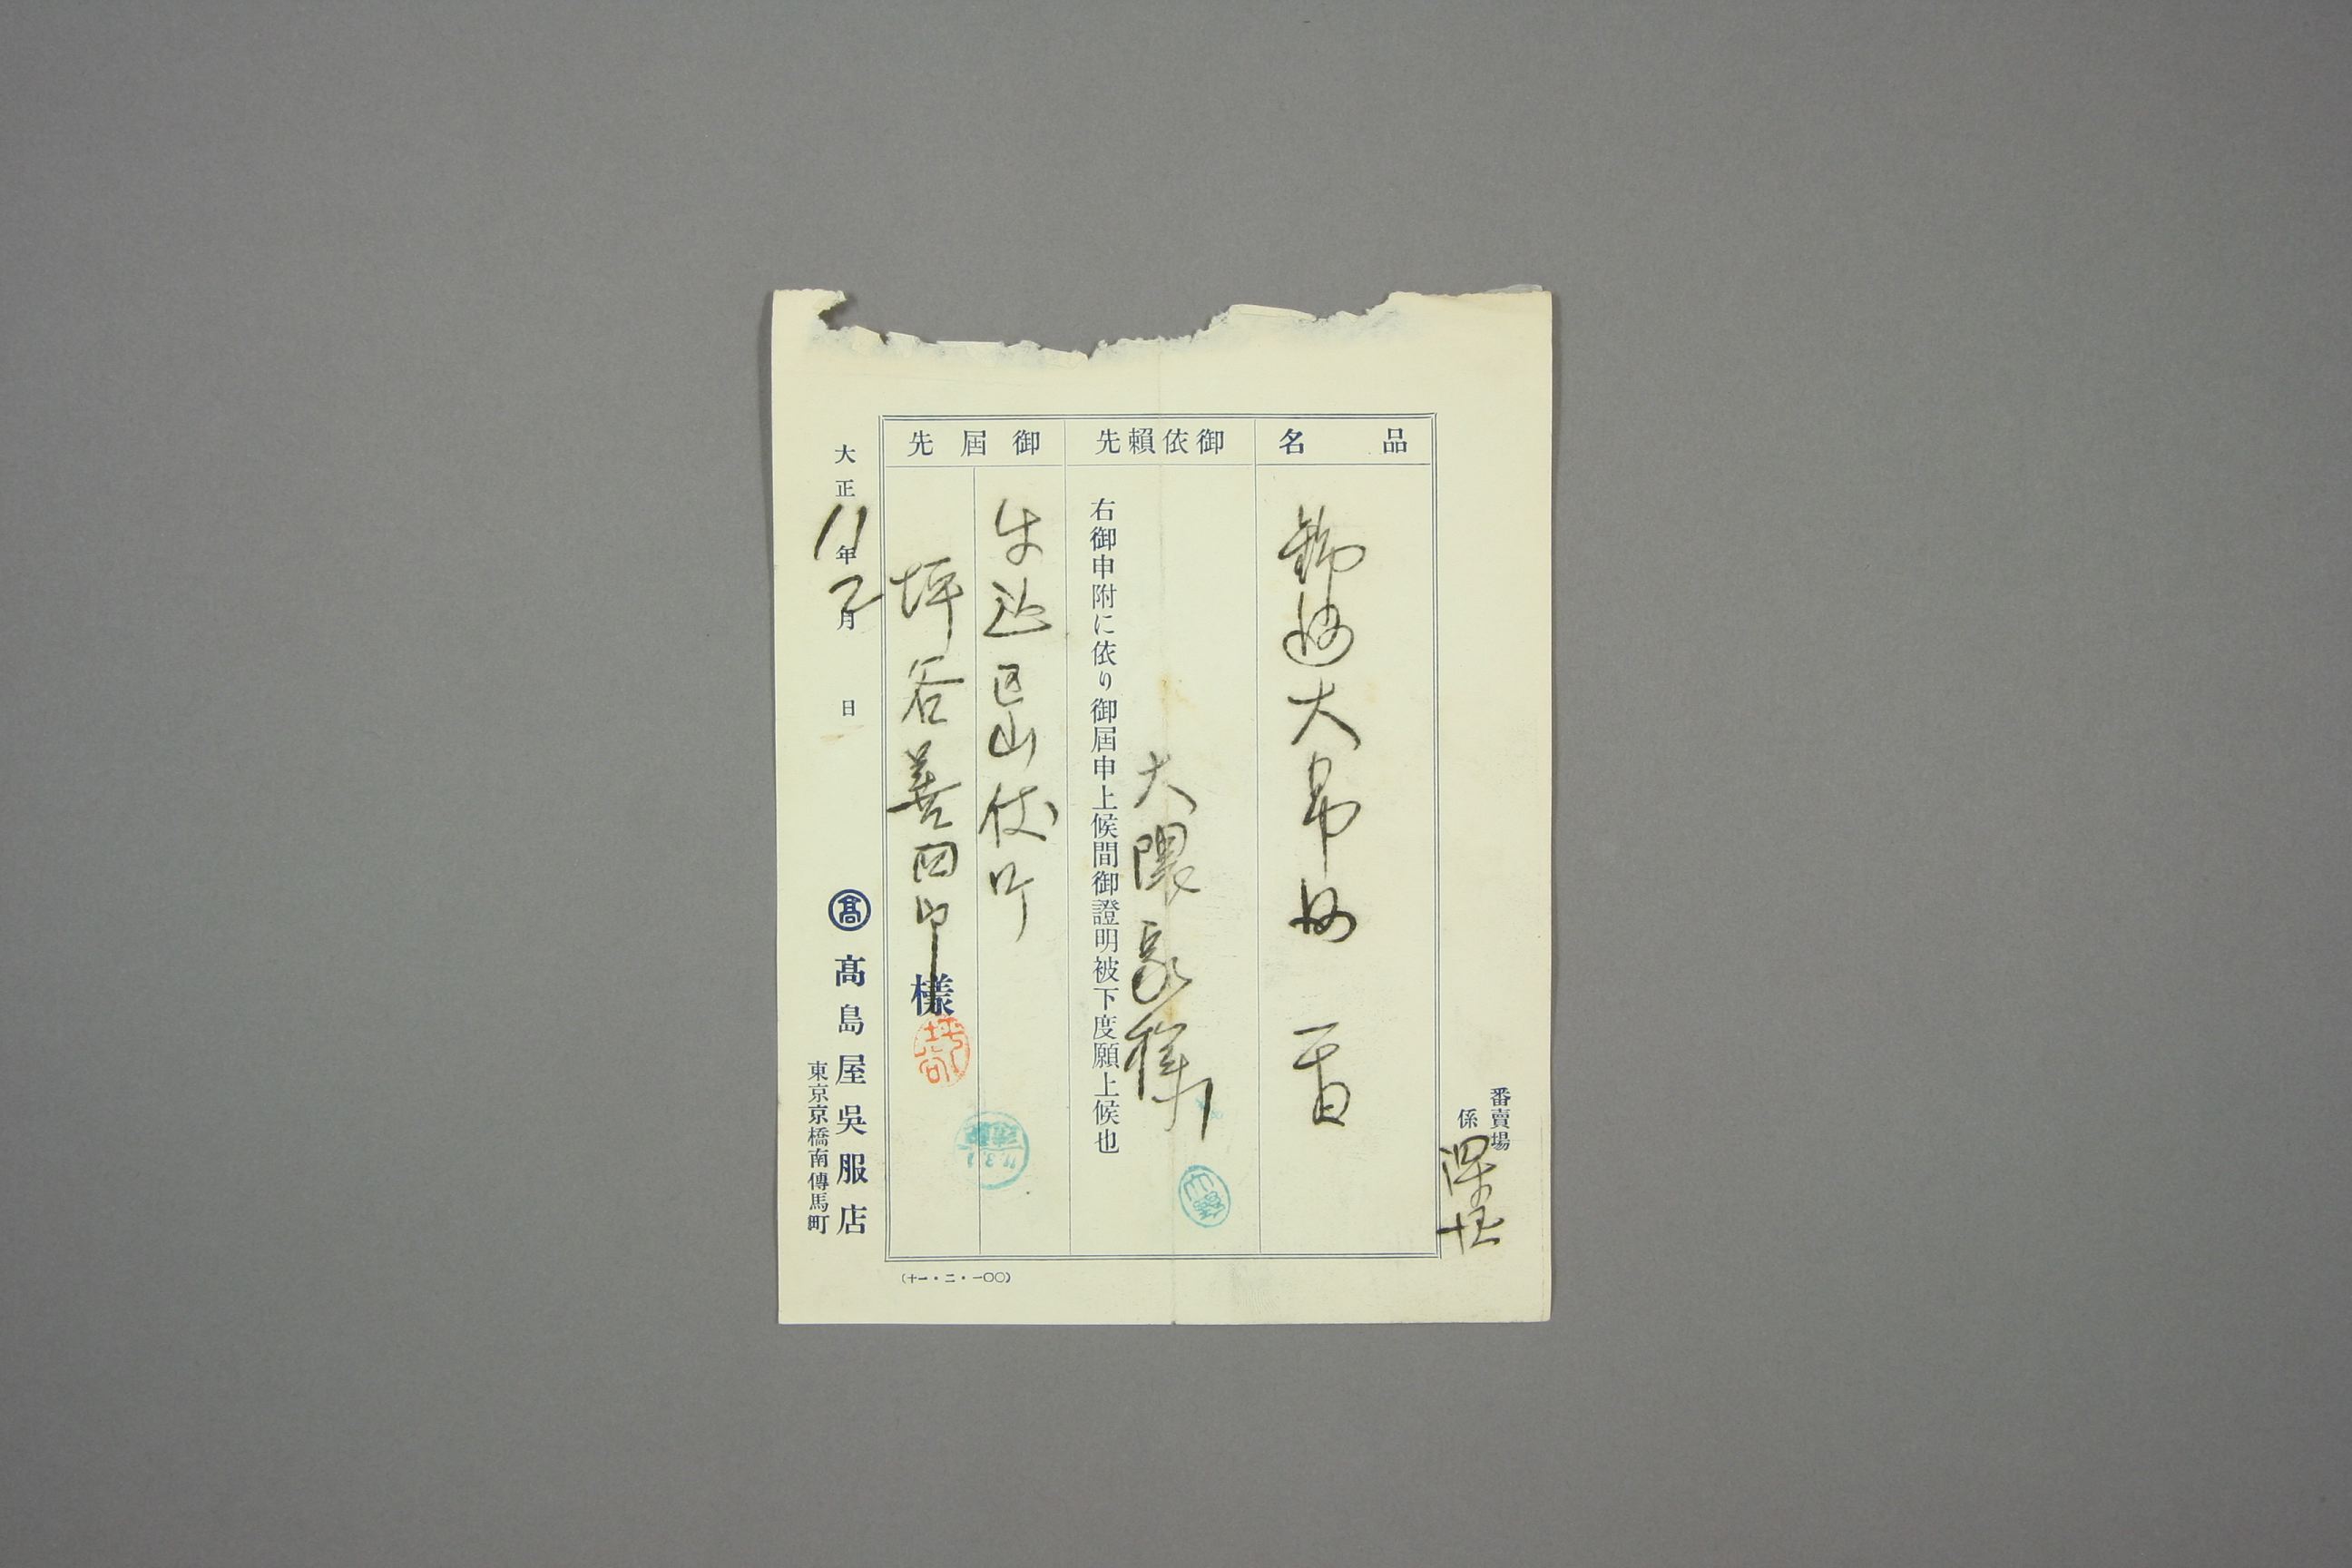 番賣場
係
品名
大帛紗
御依賴先
大隈家様
右御申附に依り御屆申上候間御證明被下度願上候也
御屆先
牛込区山伏町
坪谷善四郎
様
大正11年2月 日
髙
髙島屋吳服店
東京京橋南傳馬町
(十一・二・一〇〇)